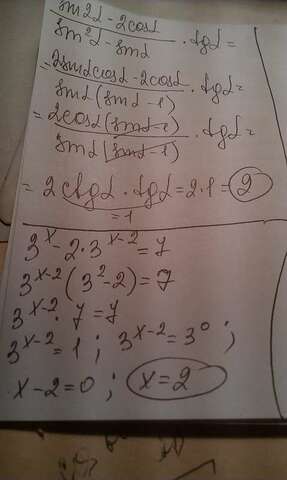 sin2α - 2cosα / sin²α - sinα · tgα =
= 2sinαcosα - 2cosα / sinα(sinα - 1) · tgα =
= 2cosα(sinα - 1) / sinα(sinα - 1) · tgα =
= 2ctgα · tgα = 2·1 = 2
= 1
3^x - 2·3^(x-2) = 7
3^(x-2) (3² - 2) = 7
3^(x-2) · 7 = 7
3^(x-2) = 1 ; 3^(x-2) = 3^0 ;
x - 2 = 0 ; x = 2